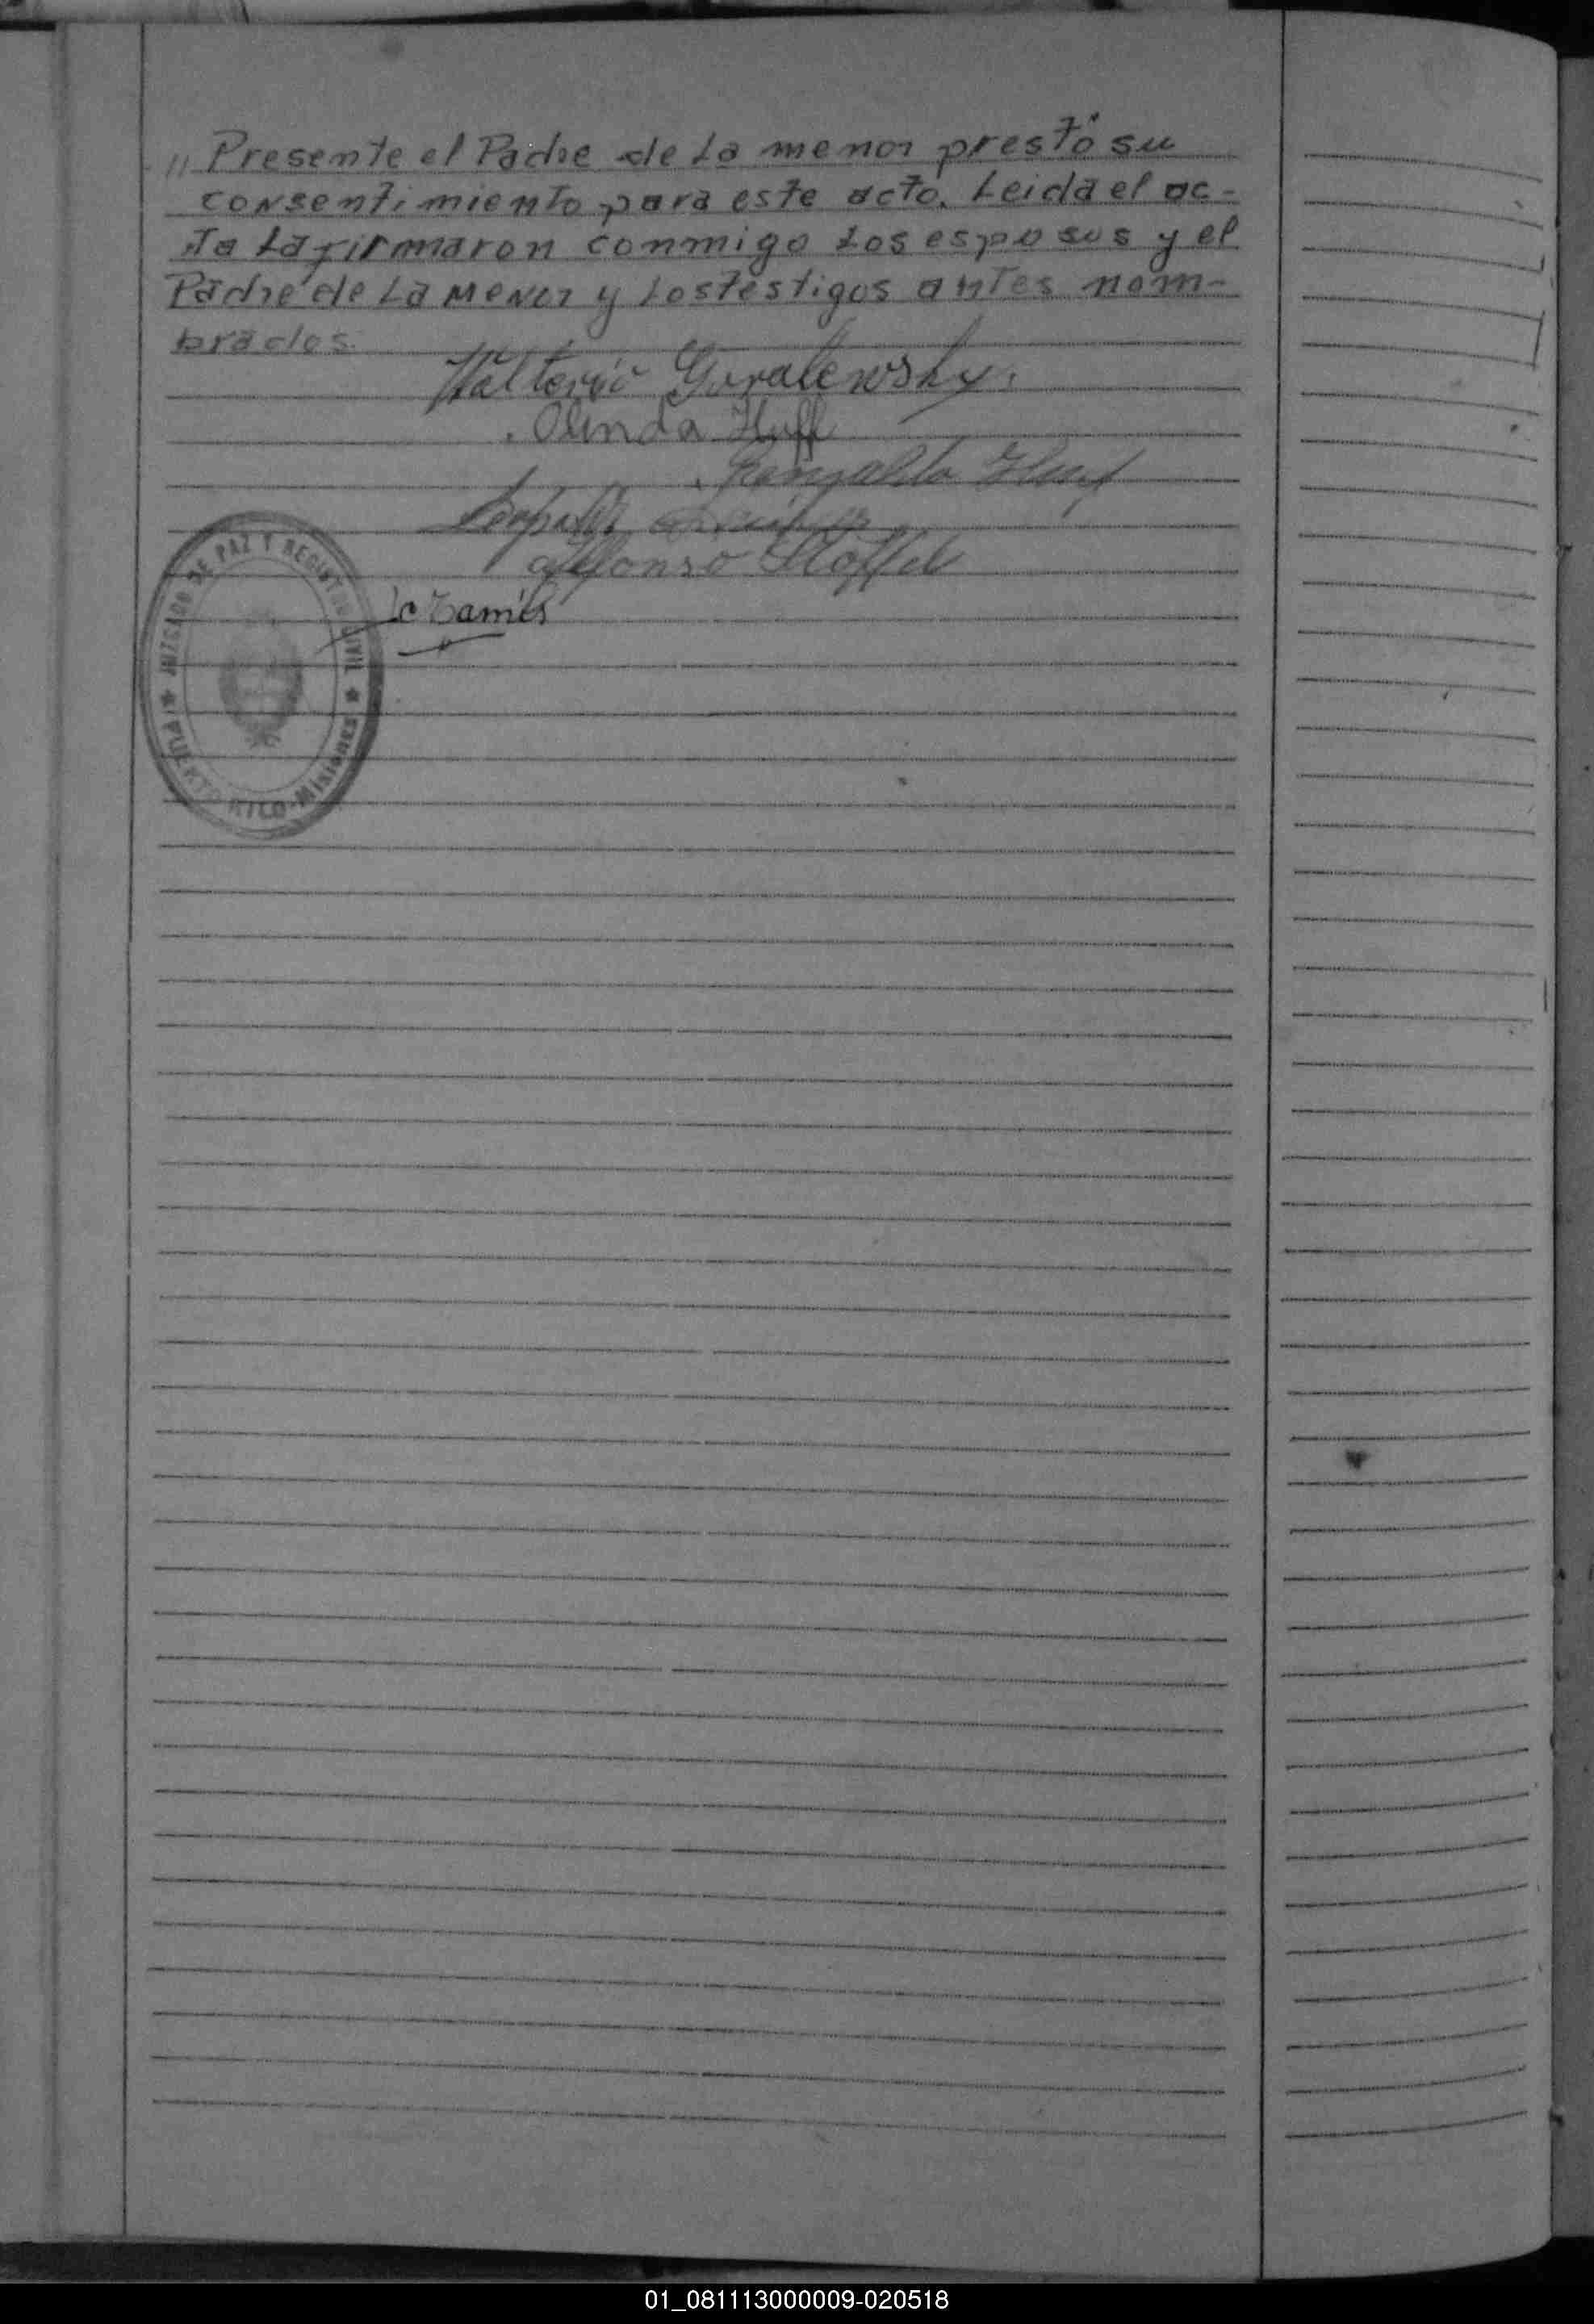 " Presente el Padre de La menor prestó su
consentimiento para este acto. Leida el ac-
ta La firmaron conmigo Los esposos y el
Padre de La Menor y Los testigos antes nom-
brados.
Olinda Huff
Alfonso Stoffel
JUZGADO DE PAZ Y REGISTRO CIVIL
★ PUERTO RICO - Misiones ★
01_081113000009-020518